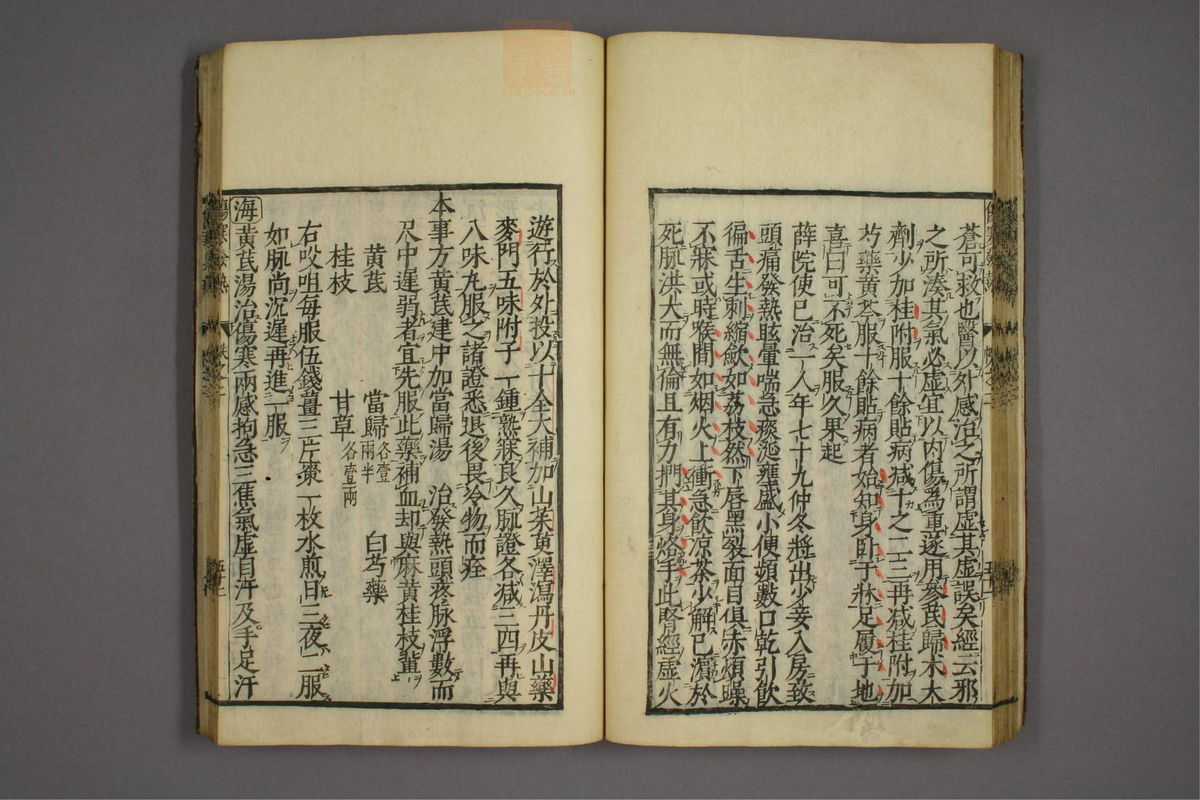 蒼可救也醫以外感迫之所謂虛其虛誤矣經云邪
之所湊其氣必虛宜以內傷為重遂用參芪歸术大
劑少加桂附服十餘貼病减十之二三再减桂附加
芍藥黃芩服十餘貼病者始知身卧于牀足履于地
喜曰可不死矣服久果起
薛院使已治一人年七十九仲冬將出少妾入房致
頭痛發熱眩暈喘急痰涎壅盛小便頻數口乾引飲
徧舌生刺縮歛如荔枝然下唇黑裂面目俱赤煩躁
不寐或時喉間如烟火上衝急飲凉茶少解已瀕於
死脉洪大而無倫且有力捫其身烙手此腎經虛火
遊行於外投以十全大補加山茱萸澤瀉丹皮山藥
麥門五味附子一鍾熟寐良久脉證各减三四再與
八味丸服之諸證悉退後畏冷物而痊
本事方黃芪建中加當歸湯 治發熱頭疼脉浮數而
尺中遲弱者宜先服此藥補血却與麻黃桂枝軰
黃芪 當歸各壹兩半 白芍藥
桂枝 甘草各壹兩
右㕮咀每服伍錢薑三片棗一枚水煎日三夜二服
如脉尚沉遲再進一服
海黃芪湯治傷寒兩感拘急三焦氣虛自汗及手足汗